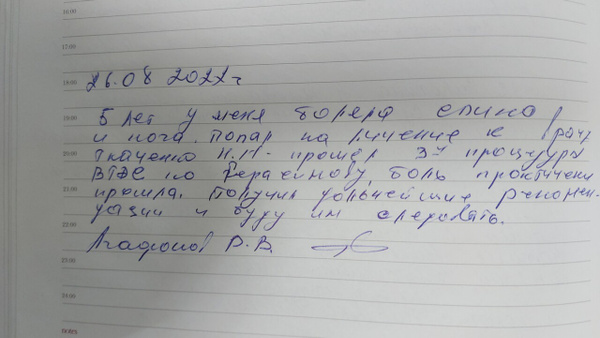 16:00
17:00
18:00
26.08 2022г
19:00
5 лет у меня болела спина
и нога. попал на личение к врачу
20:00
Ткаченко Н.П. прошёл 3и процедуры
ВТЭС по Герасимову, боль практичеки
21:00
прошла. Получил дальнейшие рекомен-
дации и буду им следовать.
22:00
Агафонов Р.В.
23:00
24:00
Notes